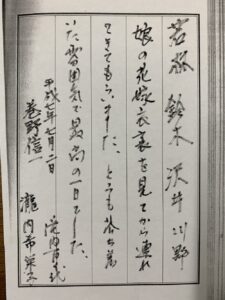 若松 鈴木 沢井 川野
娘の花嫁衣裳を見てから連れ
てきてもらいました。とても
いた雰囲気で最高の一日でした。
平成七年七月二日
滝内
巻野信一
瀧内